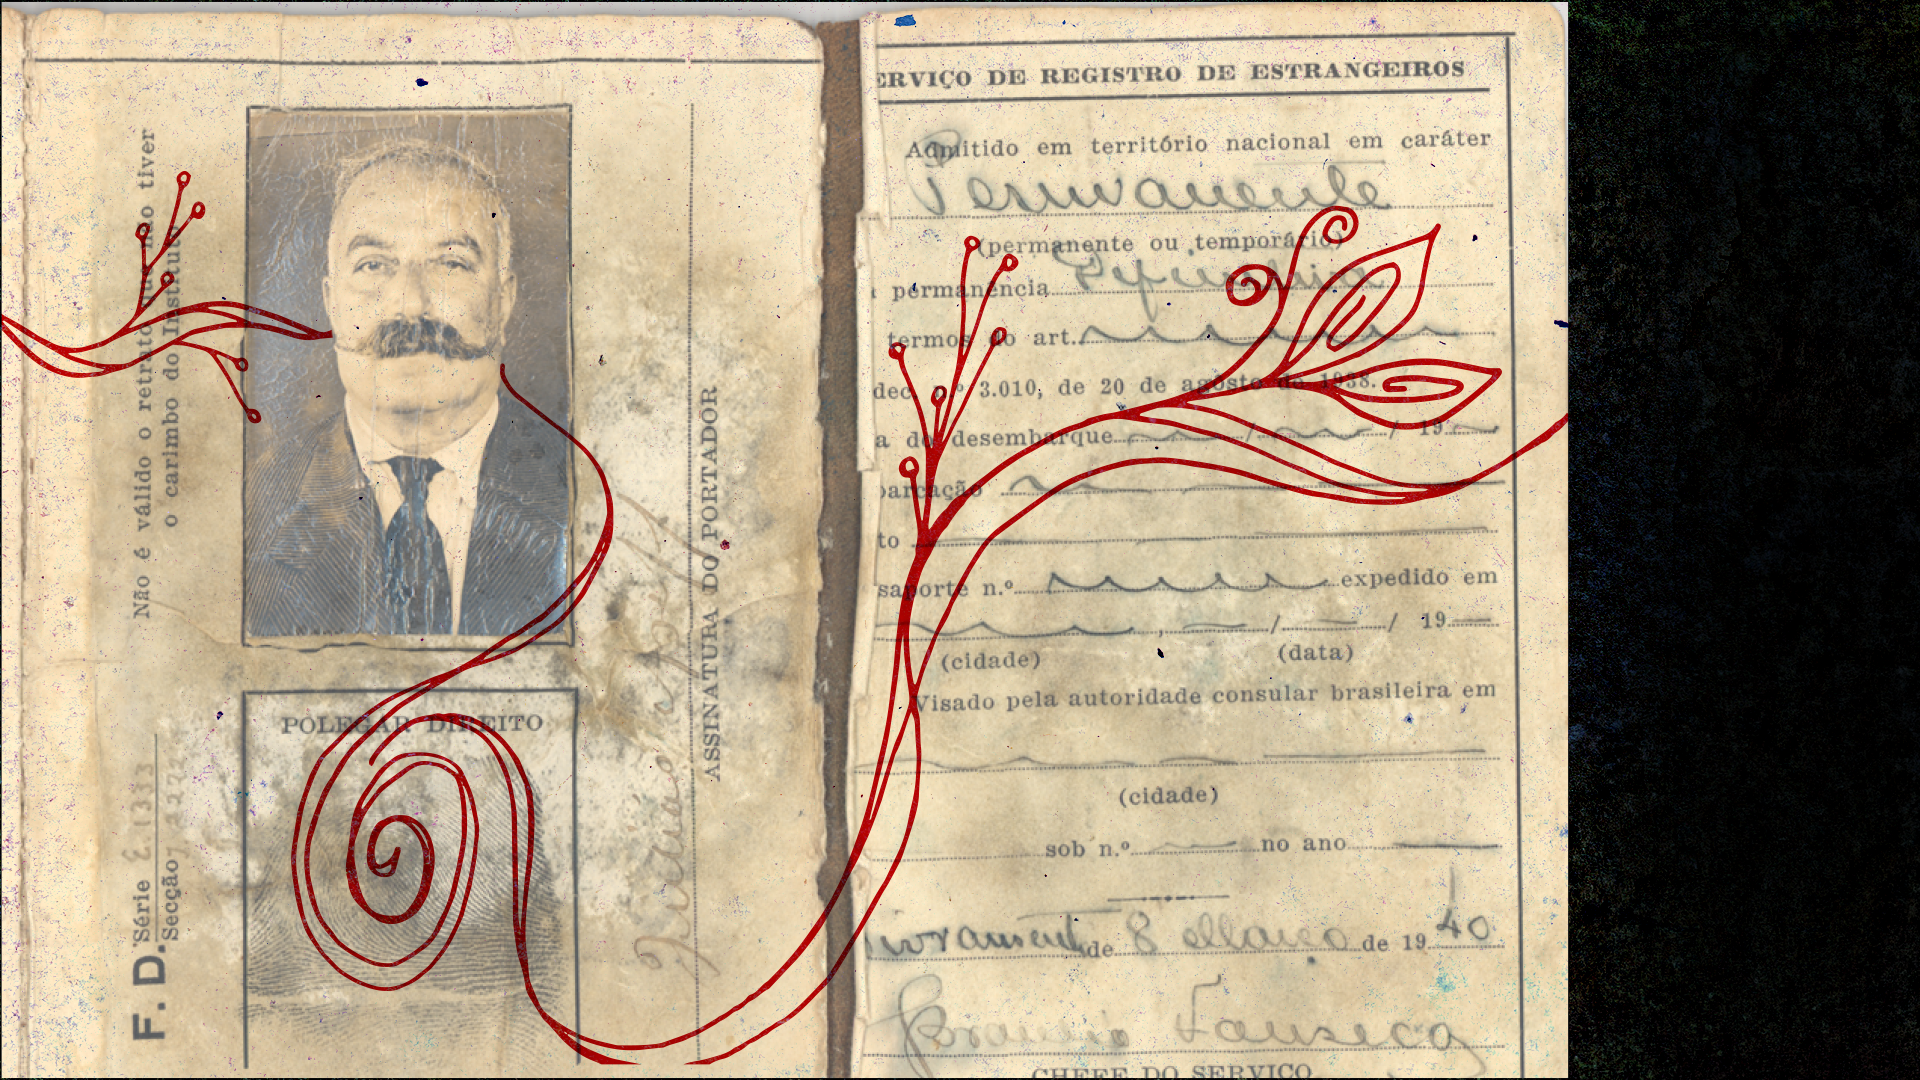 Não é válido o retrato que não tiver
o carimbo do Instituto
POLEGAR DIREITO
F. D.
Série
Secção
ASSINATURA DO PORTADOR
ERVIÇO DE REGISTRO DE ESTRANGEIROS
Admitido em território nacional em caráter
Permanente
(permanente ou temporário)
permanência
termos do art.
dec. nº 3.010, de 20 de agôsto de 1938.
a do desembarque / / 19
barcação
to
saporte n.º expedido em
, / / 19
(cidade) (data)
Visado pela autoridade consular brasileira em
(cidade)
sob n.º no ano
de 8 Março de 1940
Fonseca
CHEFE DO SERVIÇO